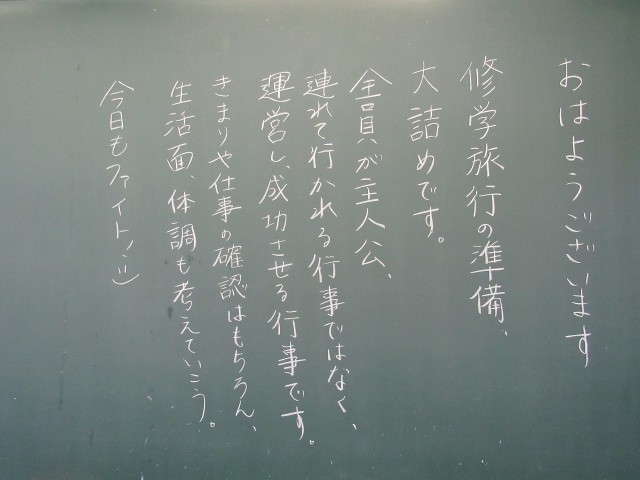 おはようございます
修学旅行の準備、
大詰めです。
全員が主人公、
連れて行かれる行事ではなく、
運営し、成功させる行事です。
きまりや仕事の確認はもちろん、
生活面、体調も考えていこう。
今日もファイトパッ)